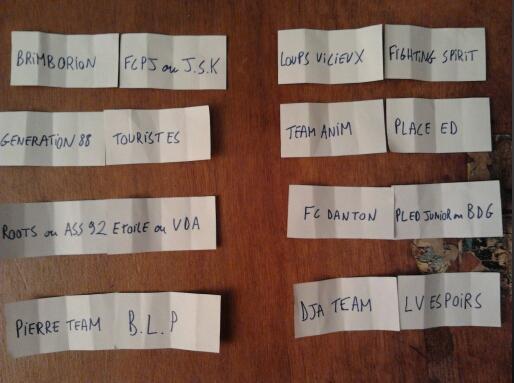 BRIMBORION FCPJ ou J.S.K
LOUPS VICIEUX FIGHTING SPIRIT
GENERATION 88 TOURISTES
TEAM ANIM PLACE ED
ROOTS ou ASS 92 ETOILE ou VDA
FC DANTON PLED JUNIOR ou BDG
PIERRE TEAM B.L.P
DJA TEAM LV ESPOIRS